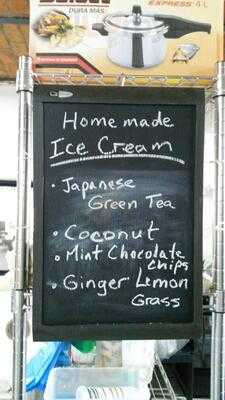 DURA MAS
EXPRESS 4 L
Home made
Ice Cream
· Japanese
Green Tea
· Coconut
· Mint Chocolate
chips
· Ginger Lemon
Grass